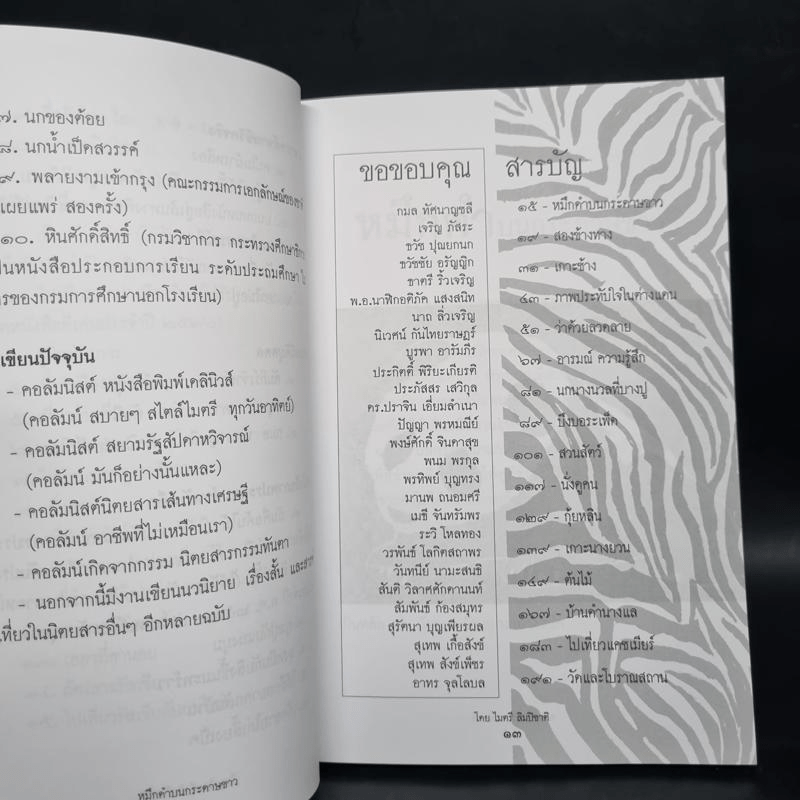 ๗. นกของต้อย
๘. นกน้ำเป็ดสวรรค์
๙. พลายงามเข้ากรุง (คณะกรรมการเอกลักษณ์ของชาติ
เผยแพร่ สองครั้ง)
๑๐. หินศักดิ์สิทธิ์ (กรมวิชาการ กระทรวงศึกษาธิการ
ป็นหนังสือประกอบการเรียน ระดับประถมศึกษา
รของกรมการศึกษานอกโรงเรียน)
เขียนปัจจุบัน
- คอลัมนิสต์ หนังสือพิมพ์เดลินิวส์
(คอลัมน์ สบายๆ สไตล์ไมตรี ทุกวันอาทิตย์)
- คอลัมนิสต์ สยามรัฐสัปดาหวิจารณ์
(คอลัมน์ มันก็อย่างนั้นแหละ)
- คอลัมนิสต์นิตยสารเส้นทางเศรษฐี
(คอลัมน์ อาชีพที่ไม่เหมือนเรา)
- คอลัมน์เกิดจากกรรม นิตยสารกรรมทันตา
- นอกจากนี้มีงานเขียนนวนิยาย เรื่องสั้น และสาร
เที่ยวในนิตยสารอื่นๆ อีกหลายฉบับ
หมึกดำบนกระดาษขาว
ขอขอบคุณ
กมล ทัศนาญชลี
เจริญ ภัสระ
ธวัช ปุณยกนก
ธวัชชัย อรัญญิก
ชาตรี ริ้วเจริญ
พ.อ.นาฬิกอติภัค แสงสนิท
นาถ ลิ่วเจริญ
นิเวศน์ กันไทยราษฎร์
บูรพา อารัมภีร
ประกิตติ์ พิริยะเกียรติ
ประภัสสร เสวิกุล
ดร.ปราจิน เอี่ยมลำเนา
ปัญญา พรหมณีย์
พงษ์ศักดิ์ จินดาสุข
พนม พรกุล
พรทิพย์ บุญทรง
มานพ ถนอมศรี
เมธี จันทรัมพร
ระวิ โหลทอง
วรพันธ์ โลกิตสถาพร
วันทนีย์ นามะสนธิ
สันติ วิลาศศักดานนท์
สัมพันธ์ ก้องสมุทร
สุรัตนา บุญเพียรผล
สุเทพ เกื้อสังข์
สุเทพ สังข์เพ็ชร
อาทร จุลโลบล
สารบัญ
๑๕ - หมึกดำบนกระดาษขาว
๑๙ - สองข้างทาง
๓๑ - เกาะช้าง
๔๓ - ภาพประทับใจในต่างแดน
๕๑ - ว่าด้วยลวดลาย
๖๗ - อารมณ์ ความรู้สึก
๘๑ - นกนางนวลที่บางปู
๘๙ - บึงบอระเพ็ด
๑๐๑ - สวนสัตว์
๑๑๗ - นั่งดูคน
๑๒๙ - กุ้ยหลิน
๑๓๙ - เกาะนางยวน
๑๔๙ - ต้นไม้
๑๖๗ - บ้านดำนางแล
๑๘๓ - ไปเที่ยวแคชเมียร์
๑๙๑ - วัดและโบราณสถาน
โดย ไมตรี ลิมปิชาติ
๑๓